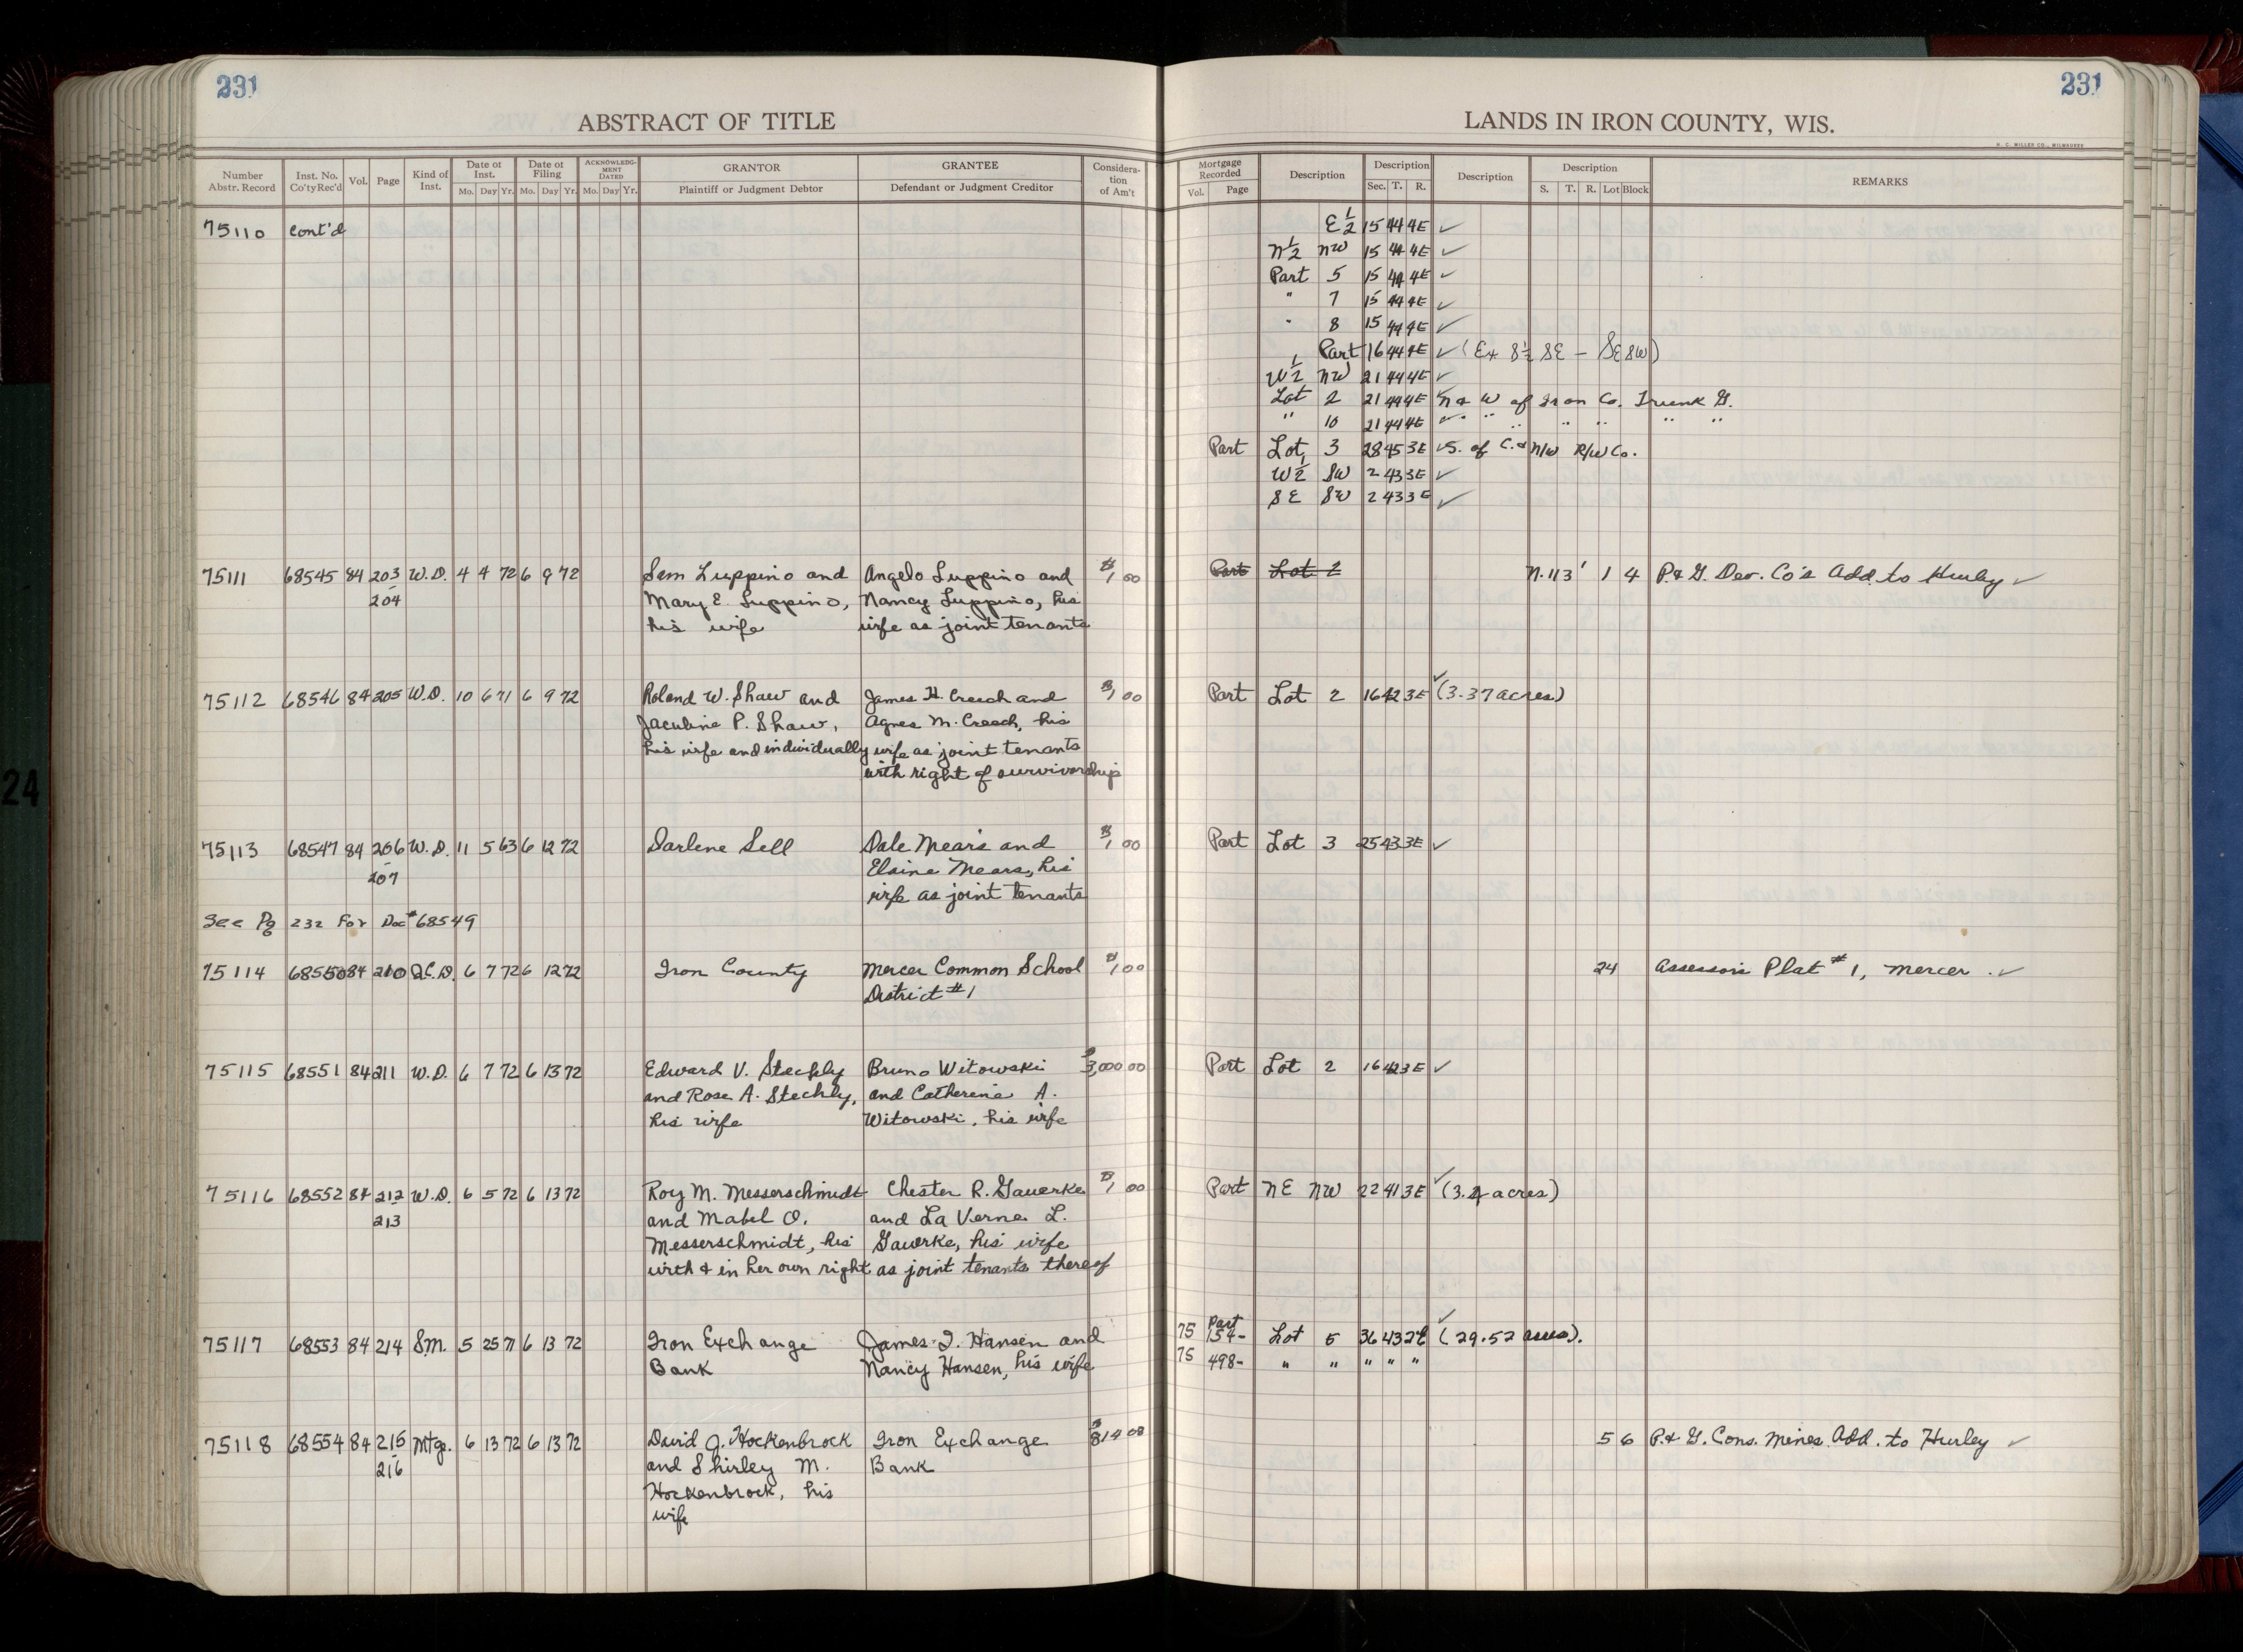 231
231
ABSTRACT OF TITLE
LANDS IN IRON COUNTY, WIS.
H. C. MILLER CO., MILWAUKEE
Number Abstr. Record | Inst. No. Co'ty Rec'd | Vol. | Page | Kind of Inst. | Date of Inst. Mo. Day Yr. | Date of Filing Mo. Day Yr. | ACKNOWLEDGMENT DATED Mo. Day Yr. | GRANTOR Plaintiff or Judgment Debtor | GRANTEE Defendant or Judgment Creditor | Consideration of Am't | Mortgage Recorded Vol. Page | Description | Description Sec. T. R. | Description | Description S. T. R. Lot Block | REMARKS
75110 Cont'd
E 1/2 15 44 4E ✓
N 1/2 NW 15 44 4E ✓
Part 5 15 44 4E ✓
" 7 15 44 4E ✓
" 8 15 44 4E ✓
Part 16 44 4E ✓ (Ex S 1/2 SE - SE SW)
W 1/2 NW 21 44 4E ✓
Lot 2 21 44 4E ✓ N & W of Iron Co. Trunk G.
" 10 21 44 4E ✓ " " " " " "
Part Lot 3 28 45 3E ✓ S. of C. & N/W R/W Co.
W 1/2 SW 2 43 3E ✓
SE SW 2 43 3E ✓
75111 68545 84 203 W.D. 4 4 72 6 9 72 Sam Luppino and Angelo Luppino and $1.00 Part Lot 2 N. 113' 1 4 P. & G. Dev. Co's Add. to Hurley ✓
204 Mary E. Luppino, Nancy Luppino, his
his wife wife as joint tenants
75112 68546 84 205 W.D. 10 6 71 6 9 72 Roland W. Shaw and James H. Creech and $1.00 Part Lot 2 16 42 3E ✓ (3.37 acres)
Jaculine P. Shaw, Agnes M. Creech, his
his wife and individually wife as joint tenants
with right of survivorship
75113 68547 84 206 W.D. 11 5 63 6 12 72 Darlene Sell Dale Mears and $1.00 Part Lot 3 25 43 3E ✓
207 Elaine Mears, his
wife as joint tenants
See Pg 232 For Doc # 68549
75114 68550 84 210 Q.C.D. 6 7 72 6 12 72 Iron County Mercer Common School $1.00 24 Assessor's Plat #1, Mercer. ✓
District #1
75115 68551 84 211 W.D. 6 7 72 6 13 72 Edward V. Stechly Bruno Witowski $3,000.00 Part Lot 2 16 42 3E ✓
and Rose A. Stechly, and Catherine A.
his wife Witowski, his wife
75116 68552 84 212 W.D. 6 5 72 6 13 72 Roy M. Messerschmidt Chester R. Gauerke $1.00 Part NE NW 22 41 3E ✓ (3.4 acres)
213 and Mabel O. and La Verne L.
Messerschmidt, his Gauerke, his wife
wirth & in her own right as joint tenants thereof
75117 68553 84 214 S.M. 5 25 71 6 13 72 Iron Exchange James I. Hansen and 75 154- Part Lot 5 36 43 2E ✓ (29.52 acres).
Bank Nancy Hansen, his wife 75 498- " " " " "
75118 68554 84 215 Mtge. 6 13 72 6 13 72 David J. Hockenbrock Iron Exchange $814 08 5 6 P. & G. Cons. Mines Add. to Hurley ✓
216 and Shirley M. Bank
Hockenbrock, his
wife
24